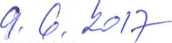 9. 6. 2017